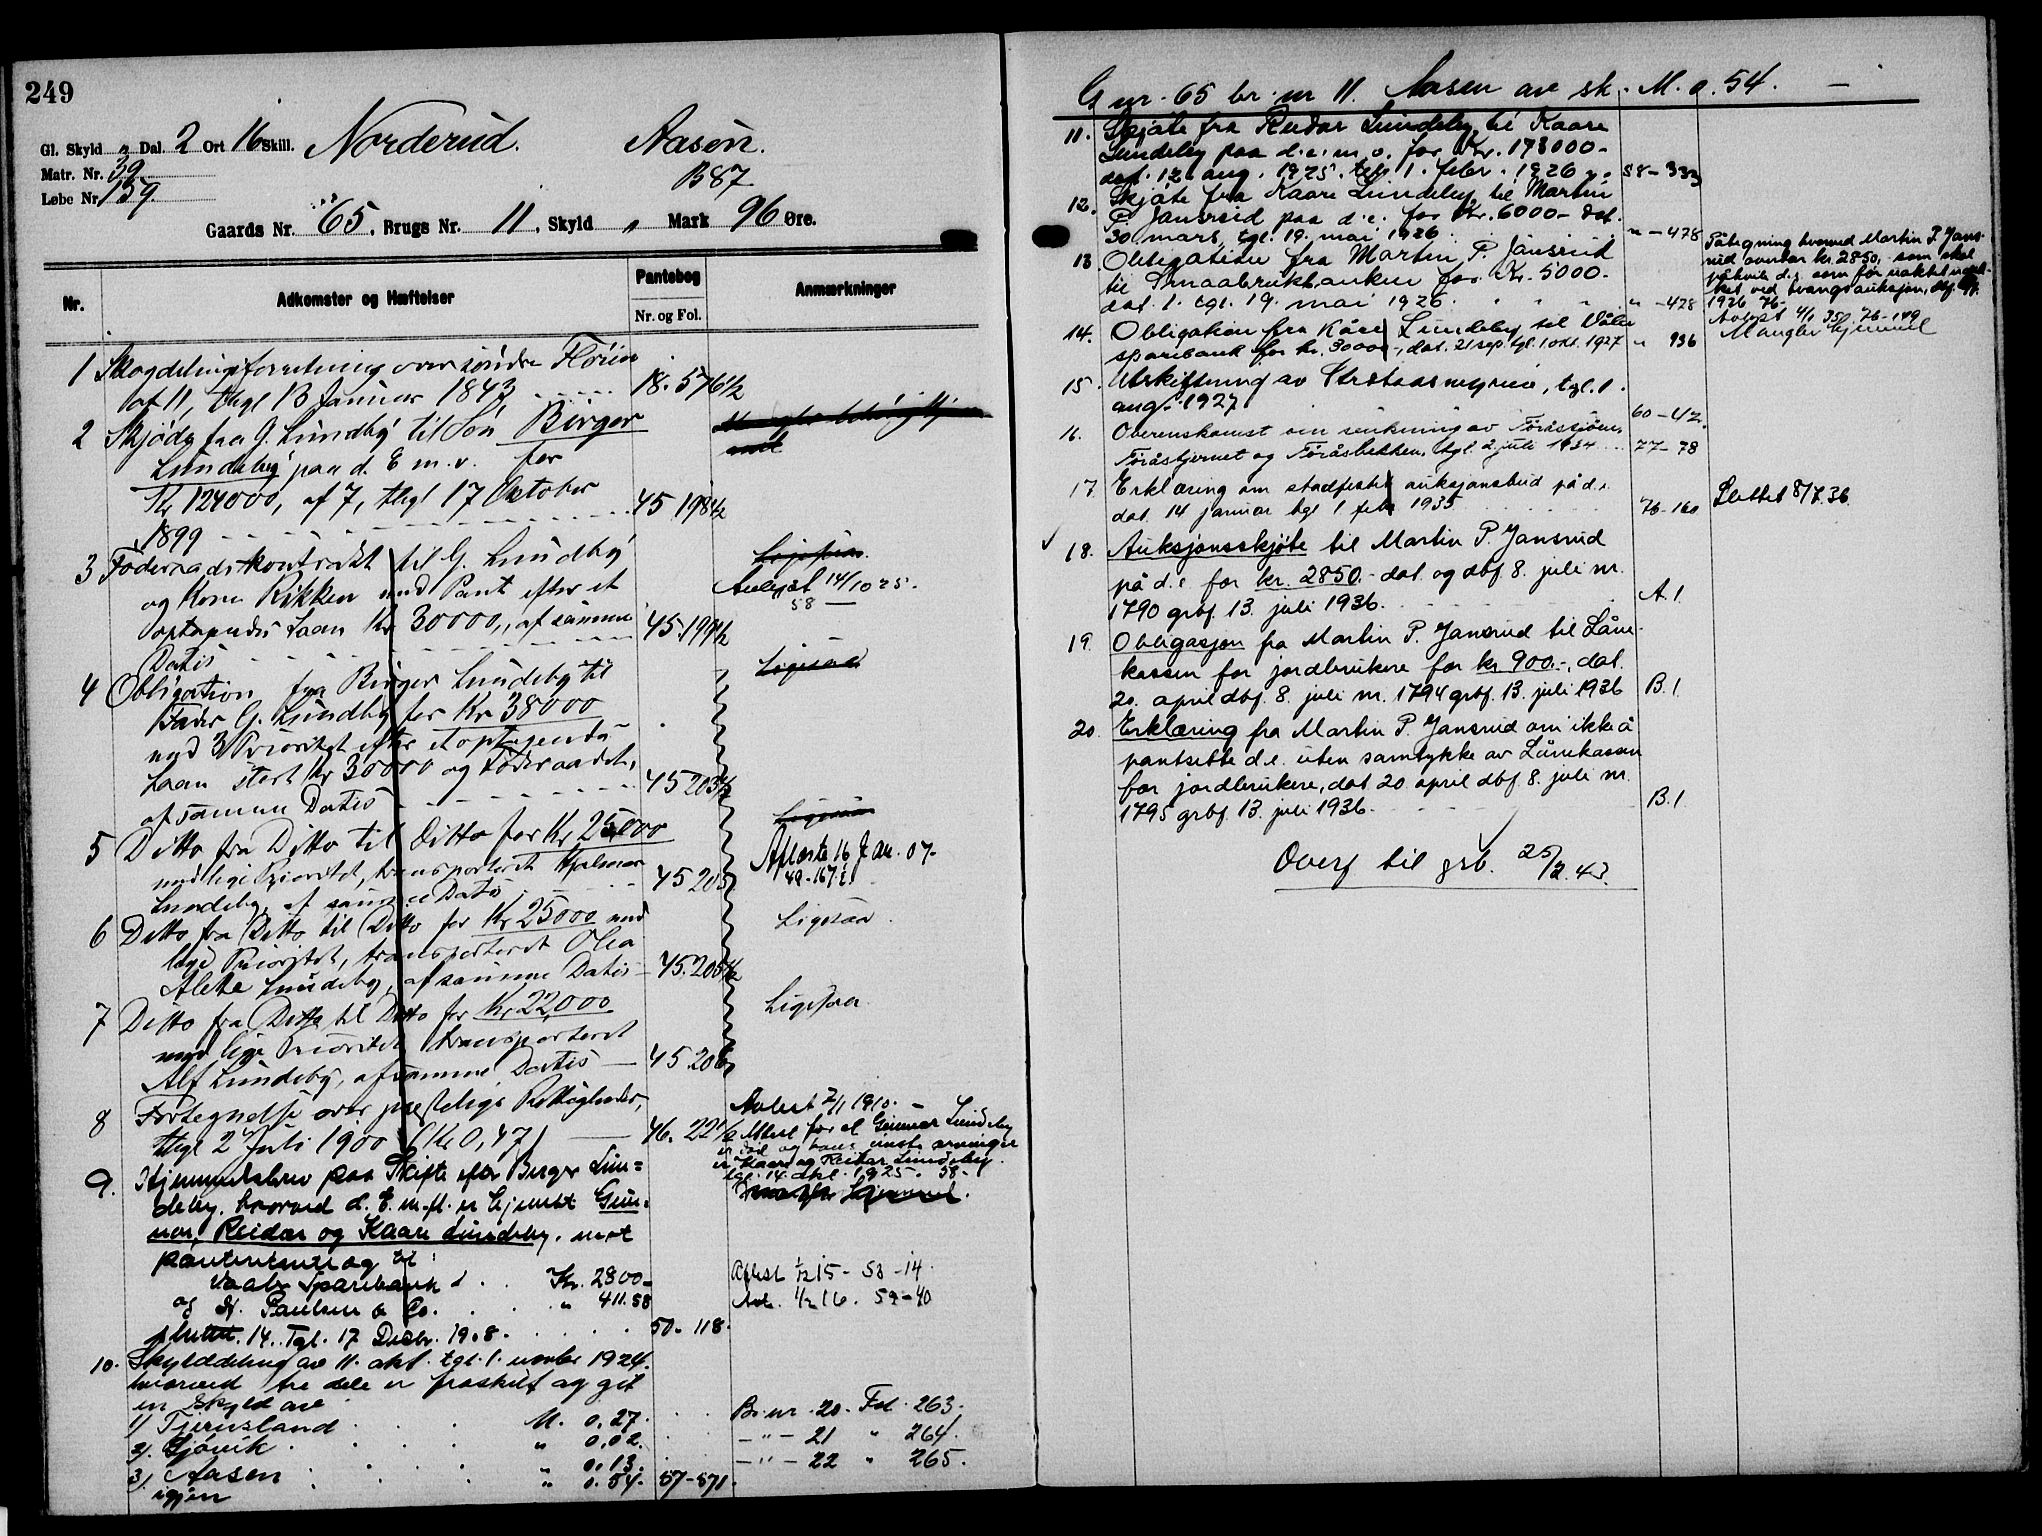 249
Gl. Skyld " Dal. 2 Ort 16 Skill. Norderud. Aasen.
Matr. Nr. 39
Løbe Nr. 159. B 87
Gaards Nr. 65, Brugs Nr. 11, Skyld " Mark 96 Øre.
Nr. Adkomster og Hæftelser Pantebog Anmærkninger
Nr. og Fol.
1 Skogdelingsforretning over søndre
af 11, thgl 13 Januar 1843 18. 576 1/2
2 Skjøde fra G. Lundby til Søn Birger
Lundeby paa d. E m. v. for
Kr 124000, af 7, thgl 17 Oktober
1899 45 198 1/2
3 Føderaadskontrakt til G. Lundby
og Kone Rikken med Pant efter et
optagendes Laan Kr 30000,, af samme
Datis 45.199 1/2
Ligesaa
Aulyst 14/10 25.
58 —
4 Obligation fra Birger Lundeby til
Fader G. Lundby for Kr 38000
med 3 Prioritet efter et optagendes
Laan stort Kr 30000 og Føderaadet,
af samme Datis 45 203 1/2
Ligesaa
5 Ditto fra Ditto til Ditto for Kr 25000
med lige Prioritet, transporteret Hjalmar
Lundeby, af samme Datis 45 205
Ligesaa
Aflæste 16 Jan. 07.
49-167
6 Ditto fra Ditto til Ditto for Kr 25000 med
lige Prioritet, transporteret Olea
Alete Lundeby, af samme Datis — 45.205 1/2
Ligesaa
7 Ditto fra Ditto til Ditto for Kr 22,000
med lige Prioritet transporteret
Alf Lundeby, af samme Datis — 45.206
Ligesaa
8 Fortegnelse over præstelige Rettigheder,
thgl 2 Juli 1900 (Kr 0,47) — 46. 22
Avlest 7/11 1910.
Attest for at Gunnar Lundeby
er død og hans eneste arvinger
er Kaare og Reidar Lundeby.
tgl. 14 okt. 1925. 58-
9. Hjemmelsbrev paa Skifte efter Birger Lun=
deby, hvorved d. E. m. fl. er hjemlet Gun=
nar, Reidar og Kaare Lundeby, mot
panteretten og til:
Vaaler Sparebank . . Kr. 2800-
og N. Paulsen & Co. . . " 411.58
sluttet. 14. Tgl. 17 Decbr. 1908. 50. 118.
Aflest 1/12 15 - 53 - 14.
Avl. 1/2 16. 52 - 40
10. Skylddeling av 11. okt. tgl. 1. novbr 1924.
hvorved tre dele er fraskilt og git
en Skyld av
1) Tjernsland M. 0.27. Br. nr. 20. Fol. 263.
2) Gjøvik " 0.02. - " - 21 " 264.
3) Aasen " 0.13. - " - 22 " 265.
igjen " 0.54. 57-571.
G. nr. 65 br. nr 11. Aasen av sk. M. o. 54. —
11. Skjøte fra Reidar Lundeby til Kaare
Lundeby paa d.e. m. v. for Kr. 178000-
dat. 12 aug. 1925. tgl. 1. febr. 1926 58-333
12. Skjøte fra Kaare Lundeby til Martin
P. Jansrud paa d.e. for Kr. 6000- dat.
30. mars, tgl. 19. mai 1926. " -478
13. Obligation fra Martin P. Jansrud
til Smaabrukbanken for Kr. 5000-
dat. 1. tgl. 19. mai 1926. " -478
Påtegning hvorved Martin P. Jans-
rud overtar kr. 2850,- som skal
påhvile d.e. som før
ved tvangsauksjon, dbf. 8/7.
1926 76-
Avlyst 4/1 350, 76-149
14. Obligation fra Kåre Lundeby til Våler
sparebank for kr. 30000,-, dat. 21 sep. tgl. 1 okt. 1927 " 936
Mangler hjemmel
15. Utskiftning av , tgl. 1.
aug. 1927 60-42.
16. Overenskomst om senkning av Føråssjøen,
Føråstjernet og Føråsbekken, tgl. 2 juli 1934 77-78
17. Erklæring om stadfestet auksjonsbud på d.e.
dat. 14 januar tgl 1 febr 1935 76-160
Slettet 8/7.36.
18. Auksjonsskjøte til Martin P. Jansrud
på d.e for kr. 2850.- dat. og dbf. 8. juli nr.
1790 grbf. 13. juli 1936. A. 1.
19. Obligasjon fra Martin P. Jansrud til Låne-
kassen for jordbrukere for kr 900.-, dat.
20. april dbf. 8. juli nr. 1794 grbf. 13. juli 1936 B. 1.
20. Erklæring fra Martin P. Jansrud om ikke å
pantsette d.e. uten samtykke av Lånekassen
for jordbrukere, dat 20 april dbf. 8. juli nr.
1795 grbf. 13. juli 1936. B. 1
Overf til grb. 25/2.43.